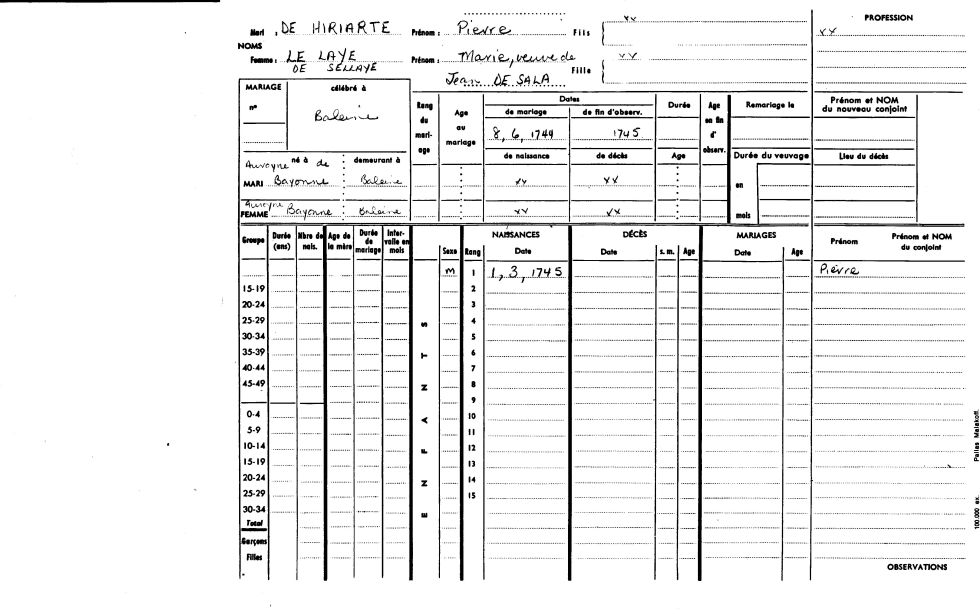 PROFESSION
Mari : DE HIRIARTE Prénom : Pierre Fils xx
xx
NOMS
Femme : LE LAYE Prénom : Marie, veuve de Fille xx
DE SELLAYE Jean DE SALA
MARIAGE célébré à
n° Baleine
Rang du mariage
Age au mariage
Dates
de mariage de fin d'observ.
8, 6, 1744 1745
de naissance de décès
Durée
Age
Age en fin d' observ.
Remariage le
Prénom et NOM du nouveau conjoint
Durée du veuvage
Lieu du décès
en
mois
né à de demeurant à
MARI Bayonne Baleine xx xx
FEMME Bayonne Baleine xx xx
Groupe Durée (ans) Nbre de nais. Age de la mère Durée de mariage Intervalle en mois
NAISSANCES DÉCÈS MARIAGES
Sexe Rang Date Date s. m. Age Date Age Prénom Prénom et NOM du conjoint
M 1 1, 3, 1745 Pierre
15-19 2
20-24 3
25-29 4
30-34 5
35-39 6
40-44 7
45-49 8
9
0-4 10
5-9 11
10-14 12
15-19 13
20-24 14
25-29 15
30-34
Total
Garçons
Filles
ENFANTS
OBSERVATIONS
100.000 ex. Pallas Malakoff.